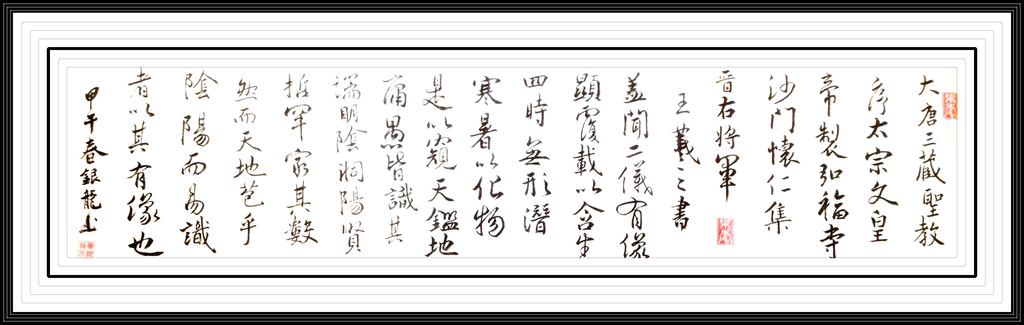 大唐三藏聖教
序太宗文皇
帝製弘福寺
沙門懷仁集
晉右將軍
王羲之書
蓋聞二儀有像
顯覆載以含生
四時無形潛
寒暑以化物
是以窺天鑑地
庸愚皆識其
端明陰洞陽賢
哲罕窮其數
然而天地苞乎
陰陽而易識
者以其有像也
甲午春銀龍